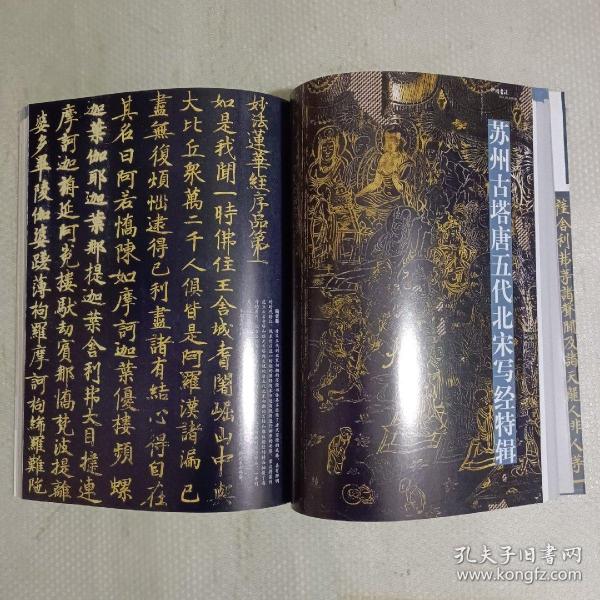 妙法蓮華經序品第一
如是我聞一時佛住王舍城耆闍崛山中
大比丘衆萬二千人俱皆是阿羅漢諸漏已
盡無復煩惱逮得已利盡諸有結心得自在
其名曰阿若憍陳如摩訶迦葉優樓頻螺
迦葉伽耶迦葉那提迦葉舍利弗大目揵連
摩訶迦旃延阿㝹樓馱劫賓那憍梵波提離
婆多畢陵伽婆蹉薄拘羅摩訶拘絺羅難陁
中国书法
苏州古塔唐五代北宋写经特辑
孔夫子旧书网
www.kongfz.com